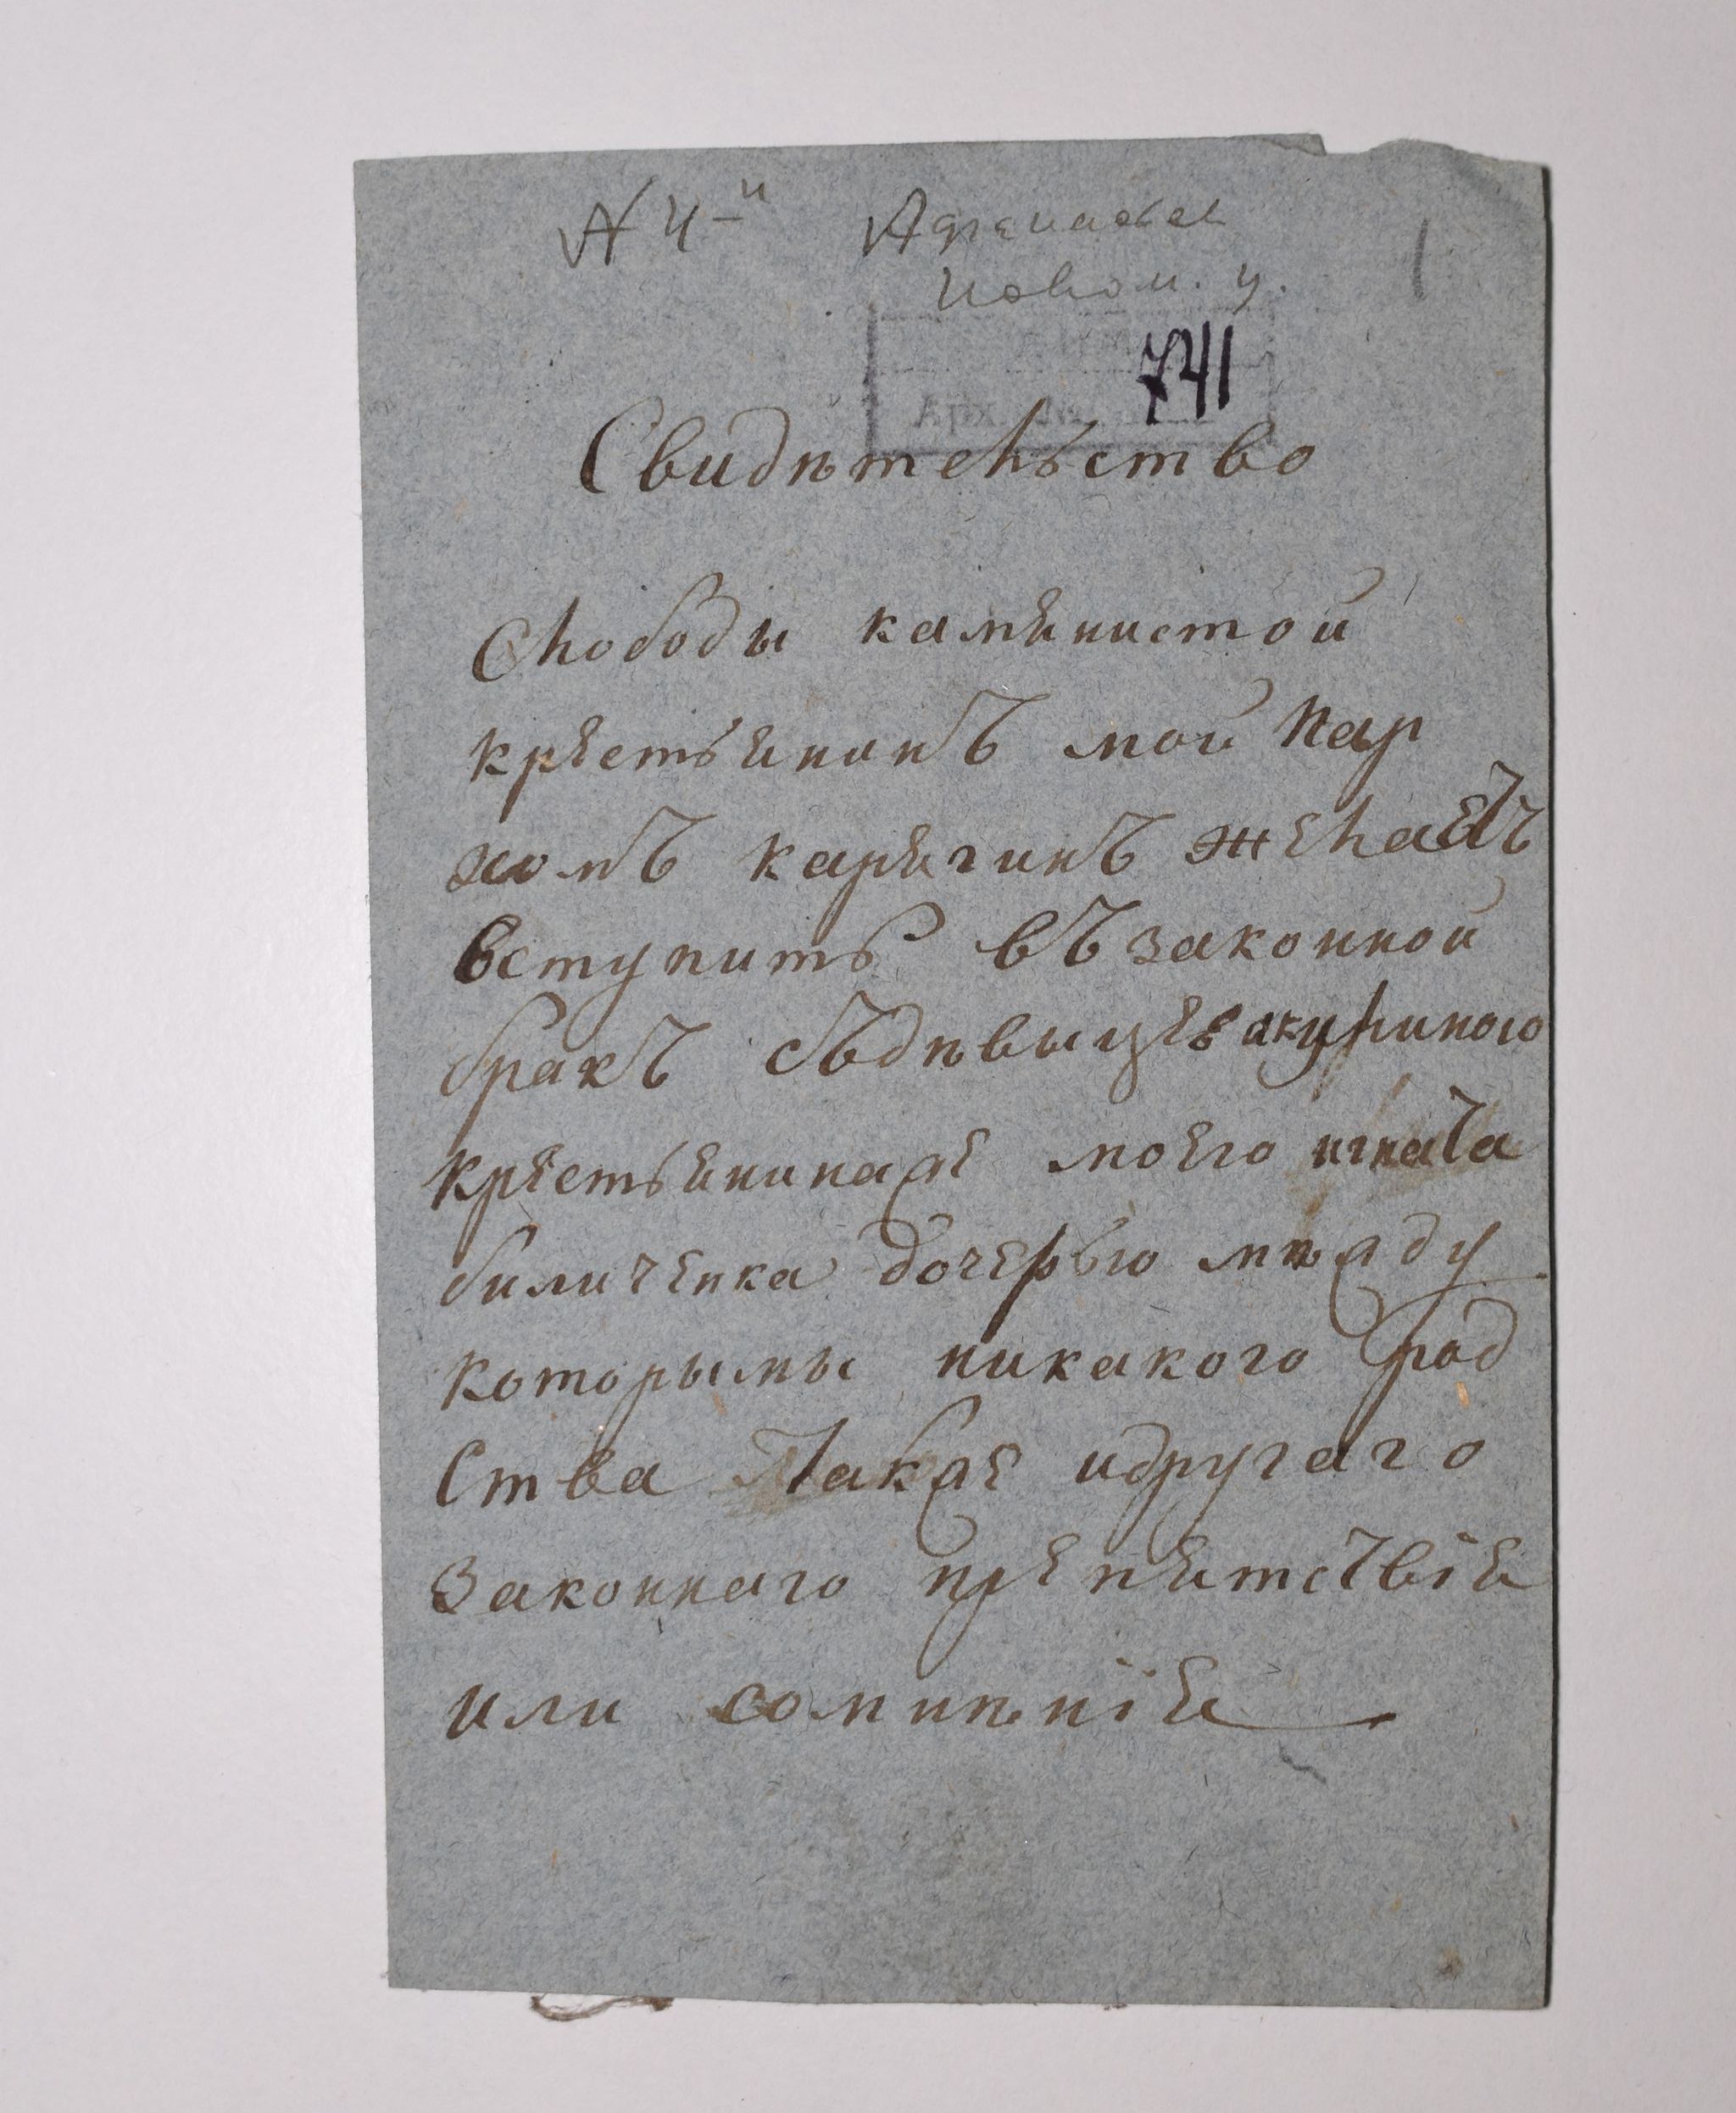 № 4-й
Новом. у.
741
Арх. №
Свидѣтельство
Слободы каменистой
крестьенинъ мой Пар
хомъ карегинъ желаетъ
вступить въ законной
бракъ съдѣвицее акулиною
крестьенинаже моего игната
биличенка дочерью мѣжду
которымы никакого род
Ства Также идругаго
Законнаго препетствіе
или сомнѣніе